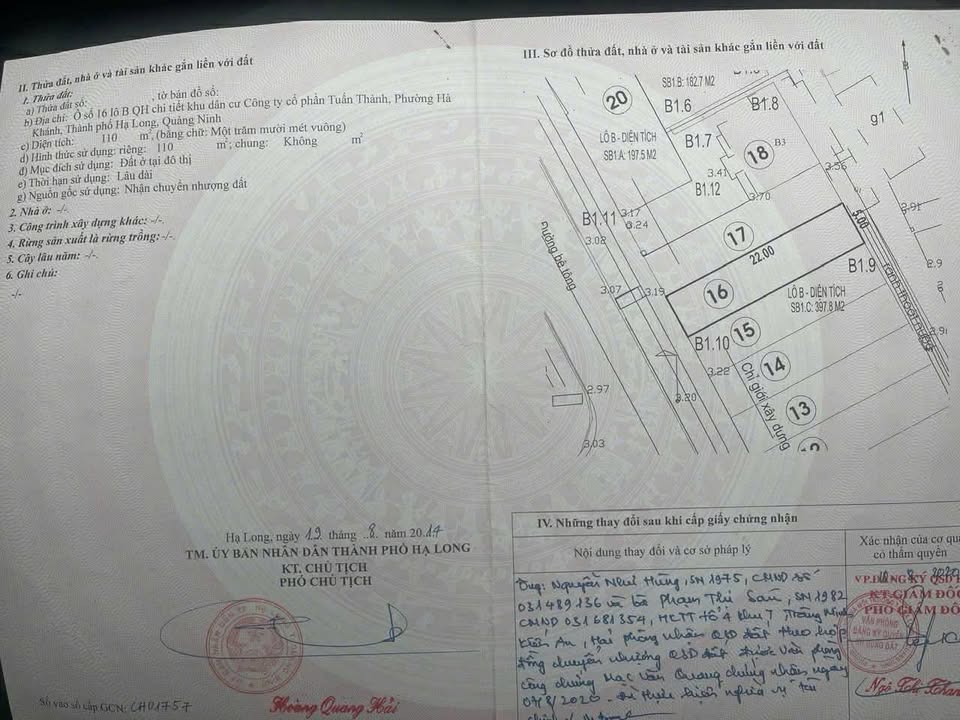 II. Thửa đất, nhà ở và tài sản khác gắn liền với đất
1. Thửa đất:
a) Thửa đất số: , tờ bản đồ số:
b) Địa chỉ: Ô số 16 lô B QH chi tiết khu dân cư Công ty cổ phần Tuấn Thành, Phường Hà
Khánh, Thành phố Hạ Long, Quảng Ninh
c) Diện tích: 110 m², (bằng chữ: Một trăm mười mét vuông)
d) Hình thức sử dụng: riêng: 110 m²; chung: Không m²
đ) Mục đích sử dụng: Đất ở tại đô thị
e) Thời hạn sử dụng: Lâu dài
g) Nguồn gốc sử dụng: Nhận chuyển nhượng đất
2. Nhà ở: -/-
3. Công trình xây dựng khác: -/-
4. Rừng sản xuất là rừng trồng: -/-
5. Cây lâu năm: -/-
6. Ghi chú:
-/-
Hạ Long, ngày 19 tháng 8 năm 2014
TM. ỦY BAN NHÂN DÂN THÀNH PHỐ HẠ LONG
KT. CHỦ TỊCH
PHÓ CHỦ TỊCH
Hoàng Quang Hải
Số vào sổ cấp GCN: CH01757
III. Sơ đồ thửa đất, nhà ở và tài sản khác gắn liền với đất
20
SB1.B: 162.7 M2
B1.6
B1.8
B
g1
LÔ B - DIỆN TÍCH
SB1.A: 197.5 M2
B1.7
18
B3
3.41
3.56
B1.12
3.70
B1.11
3.17
3.24
3.02
17
5.00
2.91
22.00
B1.9
2.9
Đường bê tông
3.07
3.19
16
LÔ B - DIỆN TÍCH
SB1.C: 397.8 M2
rãnh thoát nước
15
B1.10
2.91
3.22
14
Chỉ giới xây dựng
2.97
3.20
13
3.03
12
IV. Những thay đổi sau khi cấp giấy chứng nhận
Nội dung thay đổi và cơ sở pháp lý
Xác nhận của cơ qua
có thẩm quyền
Ông: Nguyễn Như Hùng, SN 1975, CMND số
031489136 và bà Phạm Thị Sau, SN 1982
CMND 031681354, HKTT tổ 4 khu 7, Tràng Minh
Kiến An, Hải Phòng nhận QSD đất theo hợp
đồng chuyển nhượng QSD đất được Văn phòng
công chứng Mạc Văn Quang chứng nhận ngày
04/8/2020.
VP.ĐĂNG KÝ QSD
KT.GIÁM ĐỐC
PHÓ GIÁM ĐỐ
VĂN PHÒNG
ĐĂNG KÝ QUYỀN
Ngô Thị Thanh